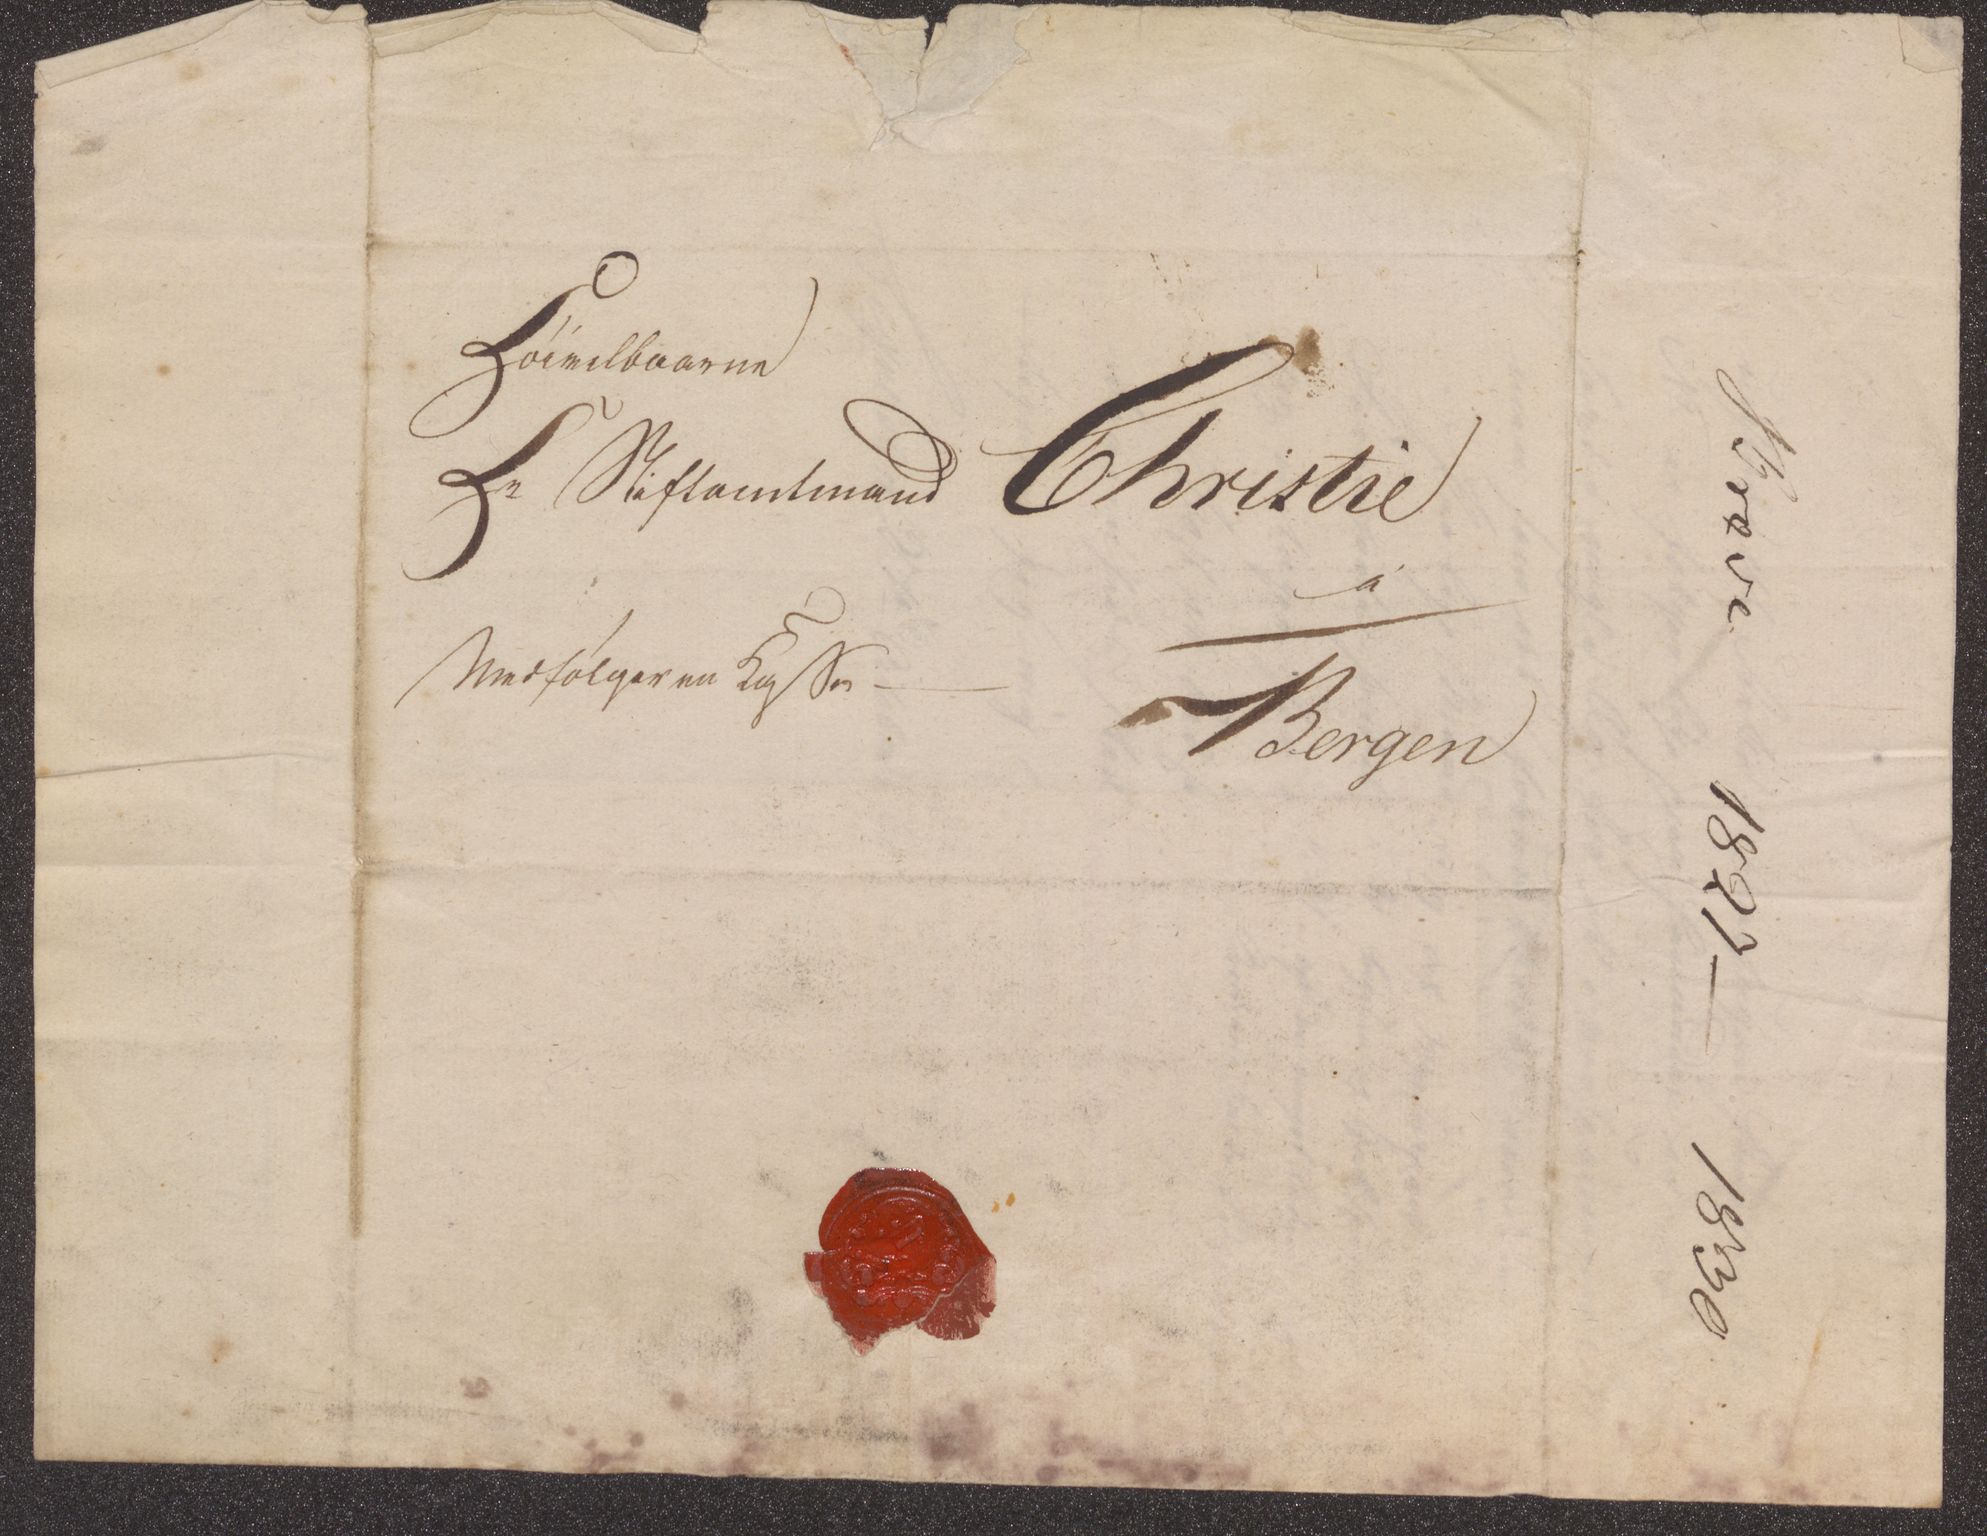 Höivelbaarne
Hr Stiftamtmand Christie
á
Bergen
Medfølger en Kasse
1827 – 1830